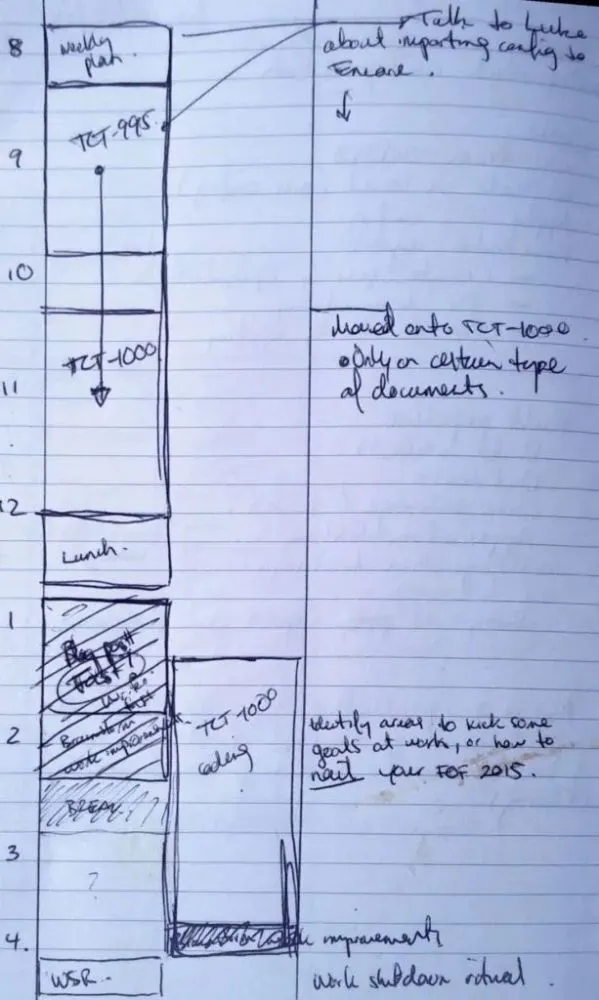 8
weekly
plan.
Talk to Luke
about importing config to
TCT-995
9
10
TCT-1000
Moved onto TCT-1000
• Only on certain type
of documents.
11
12
Lunch.
1
Blog post
Brainstorm
work improvements
TCT-1000
coding
2
identify areas to kick some
goals at work, or how to
nail your FOF 2015.
BREAK
3
?
4.
improvements
WSR.
work shutdown ritual.